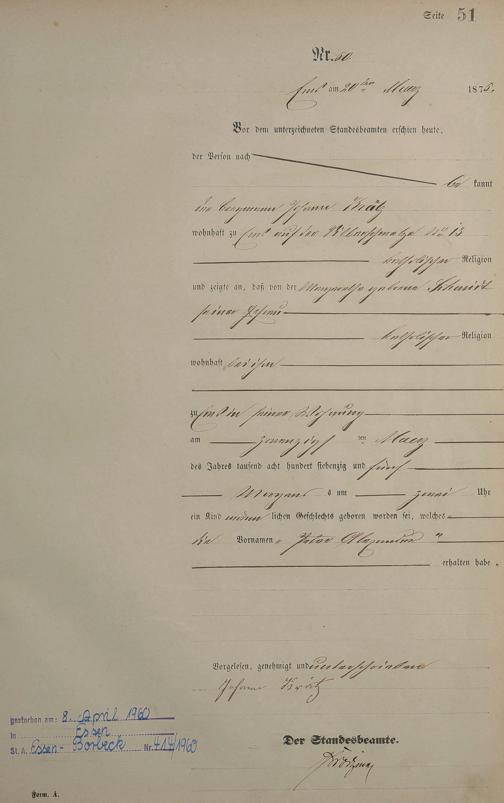 Seite 51
Nr. 50.
Ems am 20ten Maerz 1875.
Vor dem unterzeichneten Standesbeamten erschien heute,
der Person nach
be kannt
Johann
wohnhaft zu Ems auf der No 13
katholischer Religion
und zeigte an, daß von der Margaretha geborene Schmidt
seiner Ehefrau
katholischer Religion
wohnhaft bei ihm
zu Ems in seiner Wohnung
am zwanzigsten Maerz
des Jahres tausend acht hundert siebenzig und fünf
Morgens um zwei Uhr
ein Kind männlichen Geschlechts geboren worden sei, welches
die Vornamen Peter
erhalten habe.
Vorgelesen, genehmigt und unterschrieben
Johann
Der Standesbeamte.
gestorben am: 8. April 1960
in Essen
St. A. Essen-Borbeck Nr. 414/1960
Form. A.